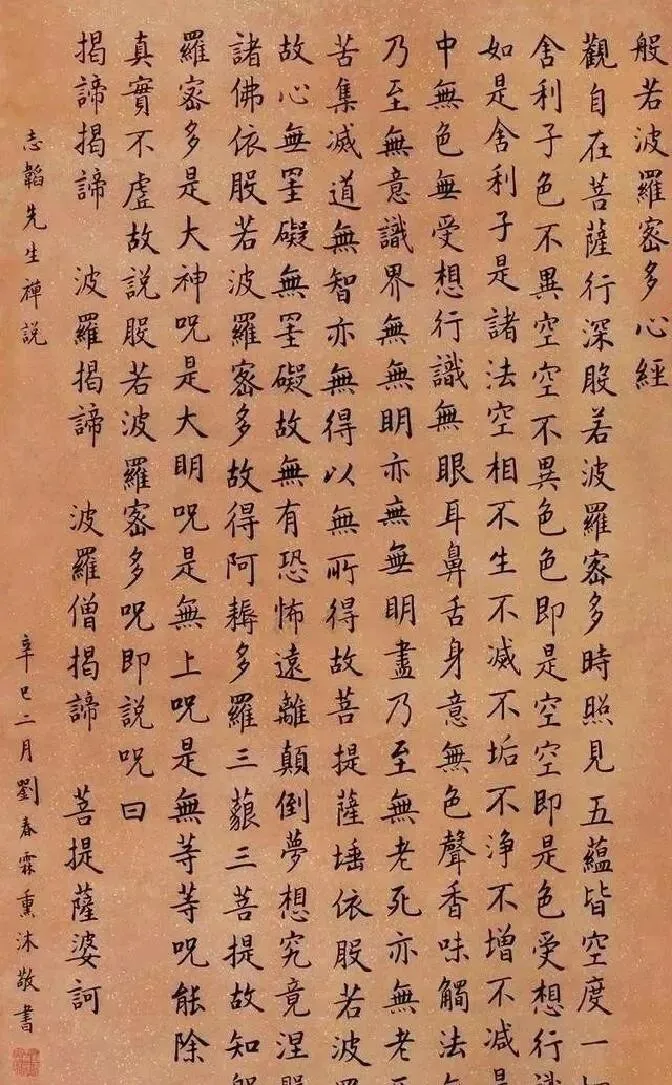 般若波羅密多心經
觀自在菩薩行深般若波羅密多時照見五蘊皆空度一
舍利子色不異空空不異色色即是空空即是色受想行
如是舍利子是諸法空相不生不滅不垢不淨不增不減
中無色無受想行識無眼耳鼻舌身意無色聲香味觸法
乃至無意識界無無明亦無無明盡乃至無老死亦無老
苦集滅道無智亦無得以無所得故菩提薩埵依般若波
故心無罣礙無罣礙故無有恐怖遠離顛倒夢想究竟涅
諸佛依般若波羅密多故得阿耨多羅三藐三菩提故知
羅密多是大神咒是大明咒是無上咒是無等等咒能除
真實不虛故說般若波羅密多咒即說咒曰
揭諦揭諦 波羅揭諦 波羅僧揭諦 菩提薩婆訶
志韜先生禪說
辛巳二月劉春霖熏沐敬書